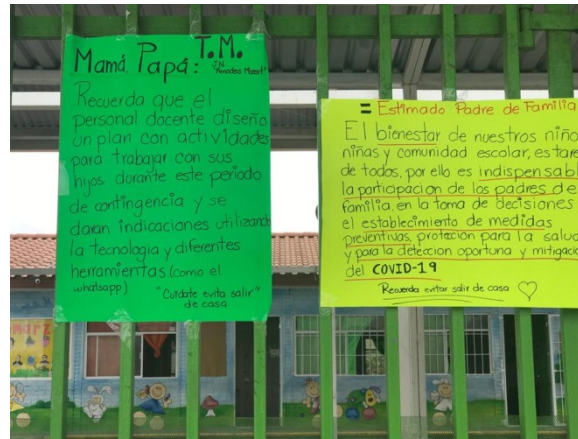 Mamá, Papá: T.M.
J.N.
"Amadeus Mozart"
Recuerda que el
personal docente diseño
un plan con actividades
para trabajar con sus
hijos durante este periodo
de contingencia y se
daran indicaciones utilizando
la tecnologia y diferentes
herramientas (como el
whatsapp)
"Cuidate evita salir"
de casa
= Estimado Padre de Familia
El bienestar de nuestros niño
niñas y comunidad escolar, es tare
de todos, por ello es indispensabl
la participacion de los padres de
familia, en la toma de decisiones
el establecimiento de medidas
preventivas, protacion para la salud
y para la detección oportuna y mitigació
del COVID-19
Recuerda evitar salir de casa
marz